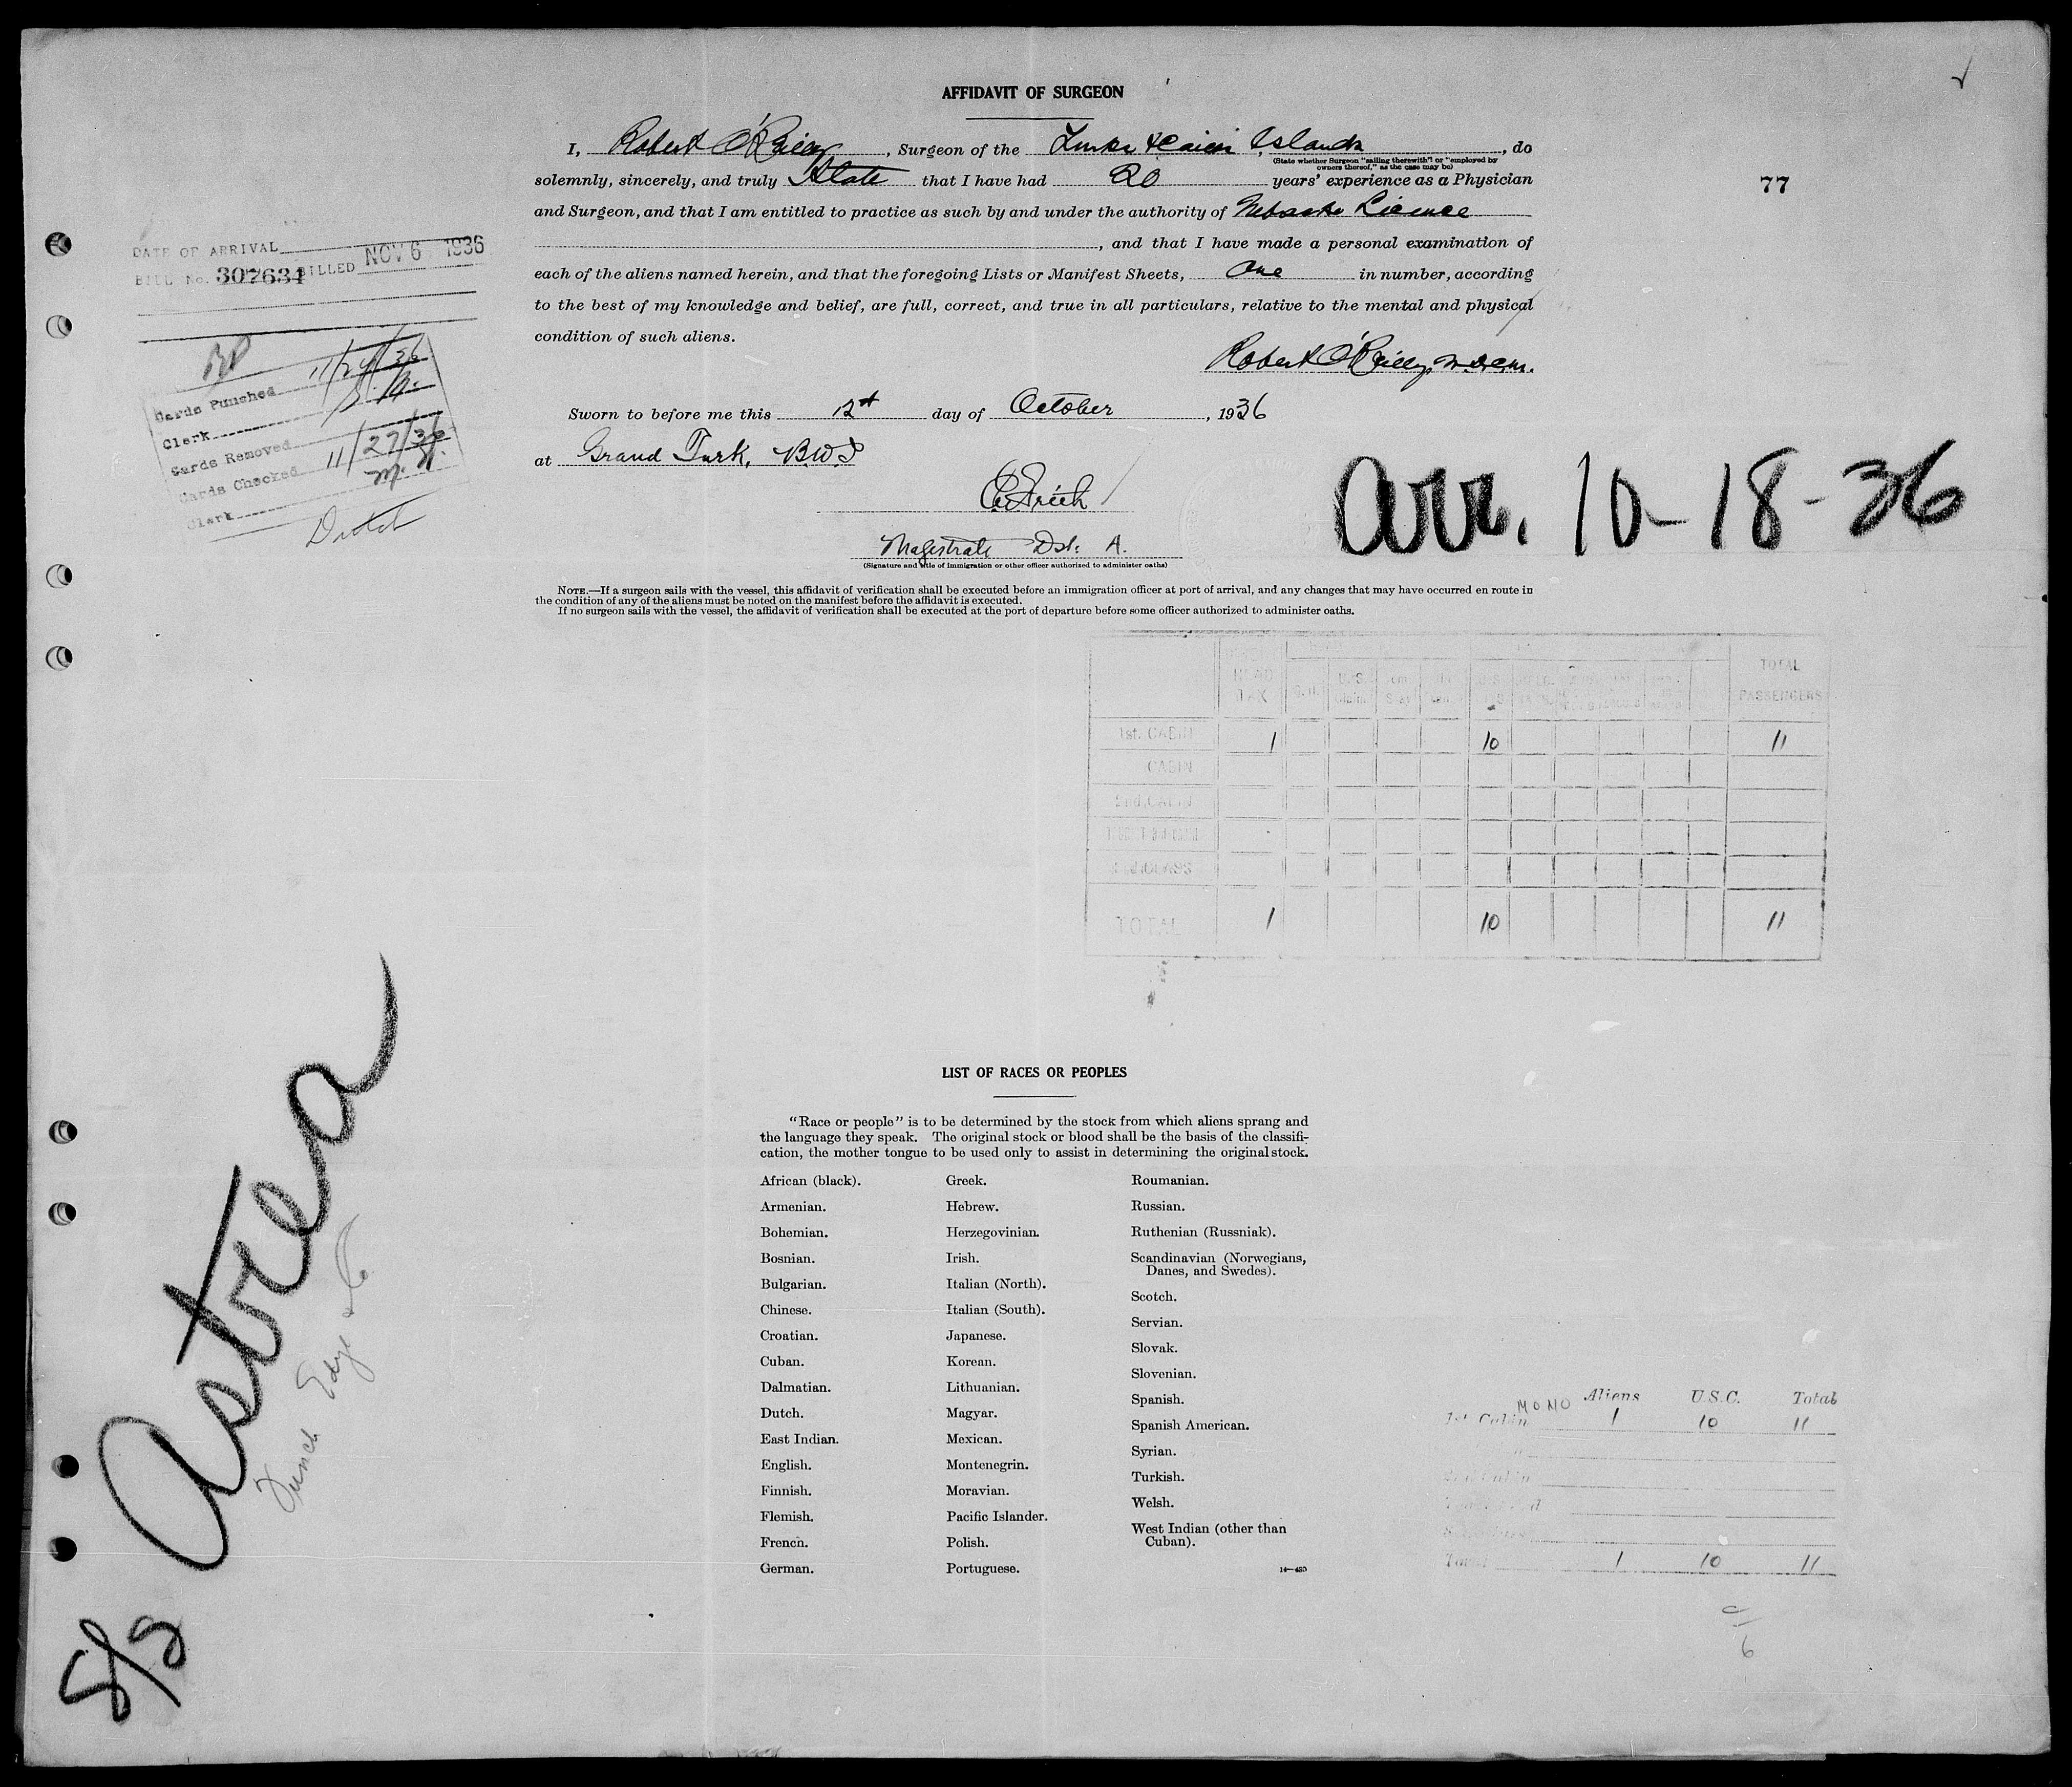 AFFIDAVIT OF SURGEON
I, Robert O'Reilly, Surgeon of the Turks & Caicos Islands, do
(State whether Surgeon "sailing therewith" or "employed by
owners thereof," as the case may be)
solemnly, sincerely, and truly State that I have had 20 years' experience as a Physician
77
and Surgeon, and that I am entitled to practice as such by and under the authority of Licence
, and that I have made a personal examination of
each of the aliens named herein, and that the foregoing Lists or Manifest Sheets, One in number, according
to the best of my knowledge and belief, are full, correct, and true in all particulars, relative to the mental and physical
condition of such aliens.
Robert O'Reilly,
Sworn to before me this 12th day of October, 1936
at Grand Turk, B.W.I
Magistrate Dst. A.
(Signature and title of immigration or other officer authorized to administer oaths)
NOTE.—If a surgeon sails with the vessel, this affidavit of verification shall be executed before an immigration officer at port of arrival, and any changes that may have occurred en route in
the condition of any of the aliens must be noted on the manifest before the affidavit is executed.
If no surgeon sails with the vessel, the affidavit of verification shall be executed at the port of departure before some officer authorized to administer oaths.
DATE OF ARRIVAL
BILL No. 307634 BILLED NOV 6 1936
Cards Punched 11/24/36
Clerk
Cards Removed
Cards Checked 11/27/36
Clerk M.
Arr. 10-18-36
HEAD TAX
U.S.
TOTAL PASSENGERS
1st. CABIN 1 10 11
CABIN
2nd. CABIN
TOTAL 1 10 11
S/S Astrea
Funch Edye & Co
LIST OF RACES OR PEOPLES
"Race or people" is to be determined by the stock from which aliens sprang and
the language they speak. The original stock or blood shall be the basis of the classifi-
cation, the mother tongue to be used only to assist in determining the original stock.
African (black).
Armenian.
Bohemian.
Bosnian.
Bulgarian.
Chinese.
Croatian.
Cuban.
Dalmatian.
Dutch.
East Indian.
English.
Finnish.
Flemish.
French.
German.
Greek.
Hebrew.
Herzegovinian.
Irish.
Italian (North).
Italian (South).
Japanese.
Korean.
Lithuanian.
Magyar.
Mexican.
Montenegrin.
Moravian.
Pacific Islander.
Polish.
Portuguese.
Roumanian.
Russian.
Ruthenian (Russniak).
Scandinavian (Norwegians,
Danes, and Swedes).
Scotch.
Servian.
Slovak.
Slovenian.
Spanish.
Spanish American.
Syrian.
Turkish.
Welsh.
West Indian (other than
Cuban).
14—430
Aliens U.S.C. Total
1st Cabin MONO 1 10 11
2nd Cabin
Total 1 10 11
6